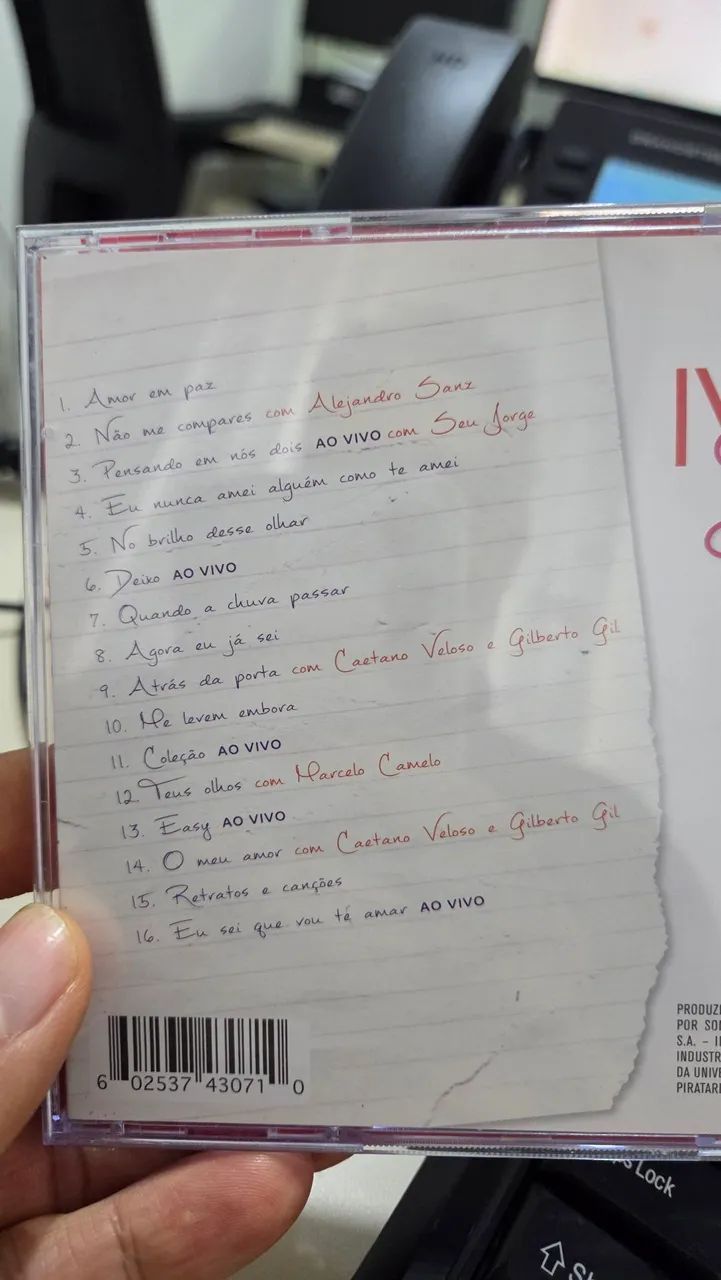 1. Amor em paz
2. Não me compares com Alejandro Sanz
3. Pensando em nós dois AO VIVO com Seu Jorge
4. Eu nunca amei alguém como te amei
5. No brilho desse olhar
6. Deixo AO VIVO
7. Quando a chuva passar
8. Agora eu já sei
9. Atrás da porta com Caetano Veloso e Gilberto Gil
10. Me levem embora
11. Coleção AO VIVO
12. Teus olhos com Marcelo Camelo
13. Easy AO VIVO
14. O meu amor com Caetano Veloso e Gilberto Gil
15. Retratos e canções
16. Eu sei que vou te amar AO VIVO
6 02537 43071 0
IV
PRODUZI
POR SO
S.A. – I
INDUSTR
DA UNIVE
PIRATAR
Lock